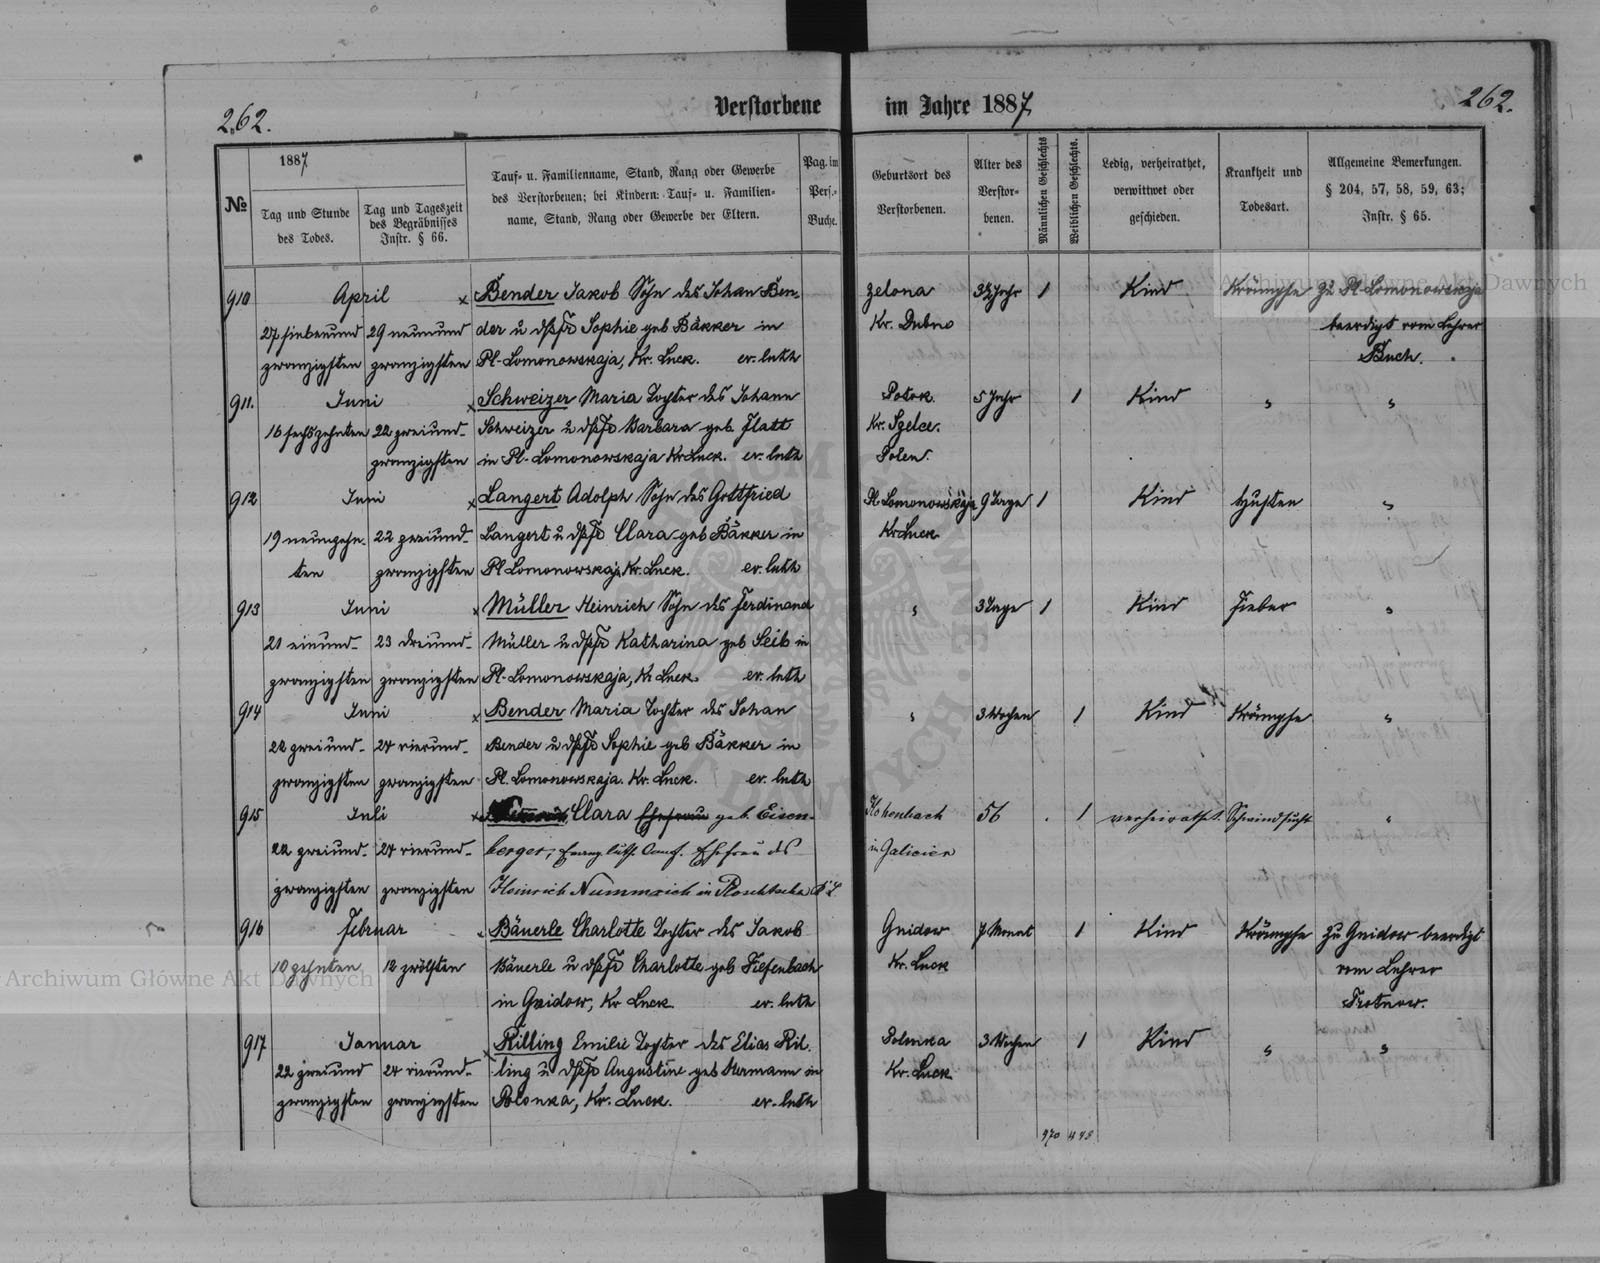 262.
Verstorbene im Jahre 1887
262.
№
1887
Tag und Stunde
des Todes.
Tag und Tageszeit
des Begräbnisses
Instr. § 66.
Tauf- u. Familienname, Stand, Rang oder Gewerbe
des Verstorbenen; bei Kindern: Tauf- u. Familien-
name, Stand, Rang oder Gewerbe der Eltern.
Pag. im
Pers.-
Buche.
Geburtsort des
Verstorbenen.
Alter des
Verstor-
benen.
Männlichen Geschlechts
Weiblichen Geschlechts.
Ledig, verheirathet,
verwittwet oder
geschieden.
Krankheit und
Todesart.
Allgemeine Bemerkungen.
§ 204, 57, 58, 59, 63;
Instr. § 65.
910 April × Bender Jakob Sohn des Johan Ben- Zelona Jahr 1 Kind Krämpfe Zu Pl-Lomonowskaja
27 siebenund 29 neunund der u Sophie geb Bäkker in Kr. Dubno beerdigt vom Lehrer
zwanzigsten zwanzigsten Pl-Lomonowskaja, Kr. Luck. ev. luth Buch.
911. Juni × Schweizer Maria Tochter des Johann Potok 5 Jahr 1 Kind " "
16 sechszehnten 22 zweiund- Schweizer u Barbara geb Flatt Kr.
zwanzigsten in Pl-Lomonowskaja Kr Luck. ev. luth Polen.
912 Juni × Langert Adolph Sohn des Gottfried Pl-Lomonowskaja 9 Tage 1 Kind Husten "
19 neunzehn- 22 zweiund- Langert u Clara geb Bäkker in Kr Luck
ten zwanzigsten Pl Lomonowskaja, Kr. Luck. ev. luth
913 Juni × Müller Heinrich Sohn des Ferdinand " 3 Tage 1 Kind Fieber "
21 einund- 23 dreiund- Müller u Katharina geb Seib in
zwanzigsten zwanzigsten Pl-Lomonowskaja, Kr Luck ev. luth
914 Juni × Bender Maria Tochter des Johan " 3 Wochen 1 Kind Krämpfe "
22 zweiund- 24 vierund- Bender u Sophie geb Bäkker in
zwanzigsten zwanzigsten Pl. Lomonowskaja. Kr. Luck. ev. luth
915 Juli × Clara Ehefrau geb. Eisen- Hohenbach 56 1 verheirathet. Schwindsucht "
22 zweiund- 24 vierund- berger, Ehefrau des in Galicien
zwanzigsten zwanzigsten Heinrich Nummrich in
916 Februar Bäuerle Charlotte Tochter des Jakob Gnidow 7 Monat 1 Kind Krämpfe Zu Gnidow beerdigt
10 zehnten 12 zwölften Bäuerle u Charlotte geb Tiefenbach Kr. Luck vom Lehrer
in Gnidow, Kr Luck ev. luth
917 Januar × Rilling Emilie Tochter des Elias Ril- Polonka 3 Wochen 1 Kind " "
22 zweiund 24 vierund- ling u Augustine geb Hermann in Kr. Luck
zwanzigsten zwanzigsten Polonka, Kr. Luck. ev. luth
Archiwum Główne Akt Dawnych
Archiwum Główne Akt Dawnych